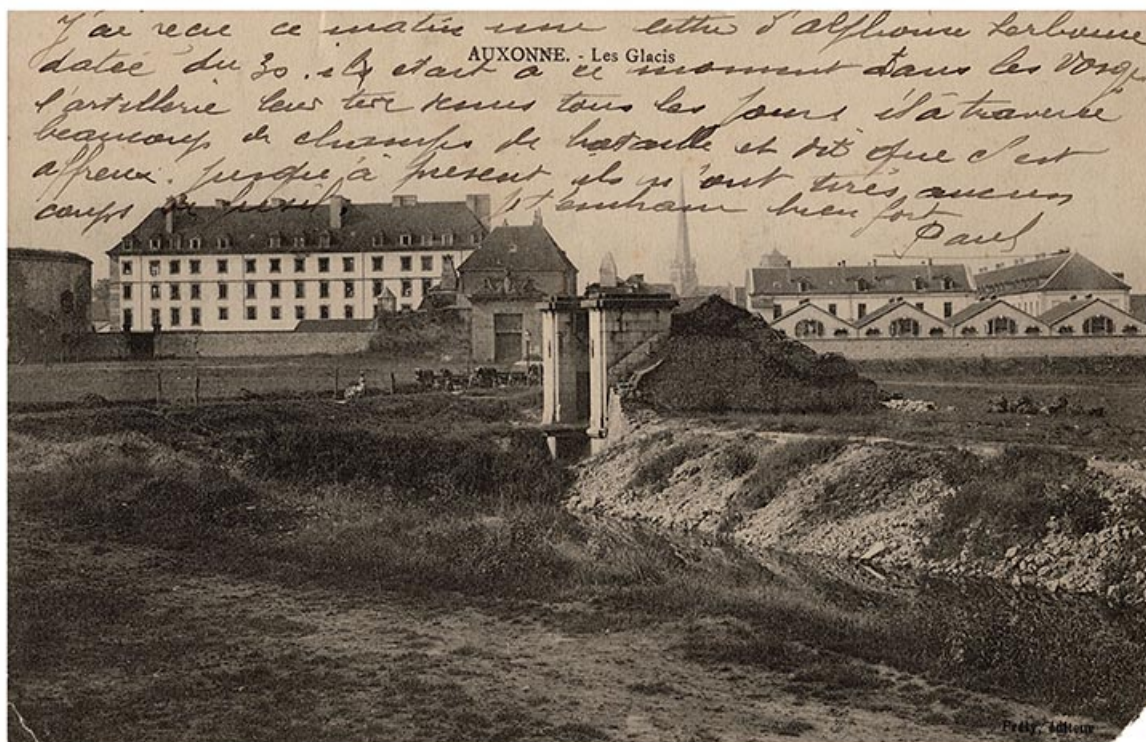 J'ai reçu ce matin une lettre d'alphonse
AUXONNE. - Les Glacis
datée du 30. ils étart à ce moment dans les Vosge
l'artillerie leur tire dessus tous les jours il à traversé
beaucoup de champs de bataille et dit que c'est
affreux. jusqu'à présent ils n'ont tirés aucun
coups de fusil. Je t'embrasse bien fort
Paul
Frély, éditeur